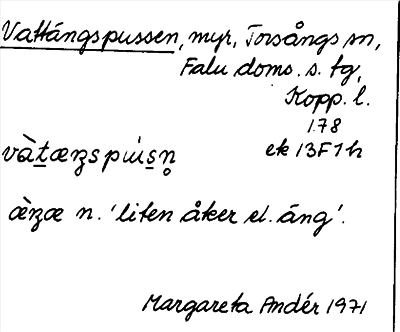 Vattängspussen, myr, Torsångs sn,
Falu doms. s. tg,
Kopp. l.
178
ek 13F1h
àʒæ n. 'liten åker el. äng'.
Margareta Andér 1971